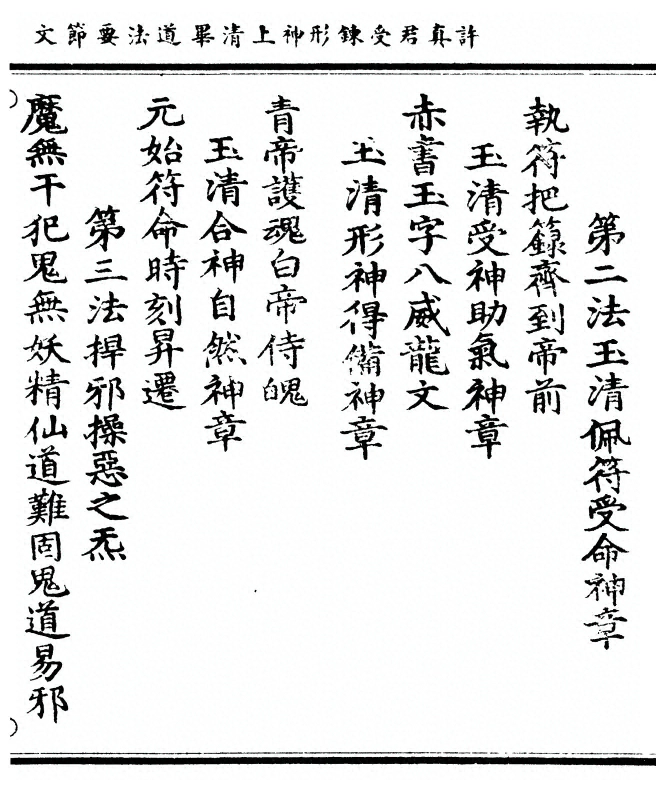 許真君受錬形神上清畢道法要節文
第二法玉清佩符受命神章
執符把籙齊到帝前
玉清受神助氣神章
赤書玉字八威龍文
玉清形神得備神章
青帝護魂白帝侍魄
玉清合神自然神章
元始符命時刻昇遷
第三法捍邪操惡之炁
魔無干犯鬼無妖精仙道難固鬼道易邪